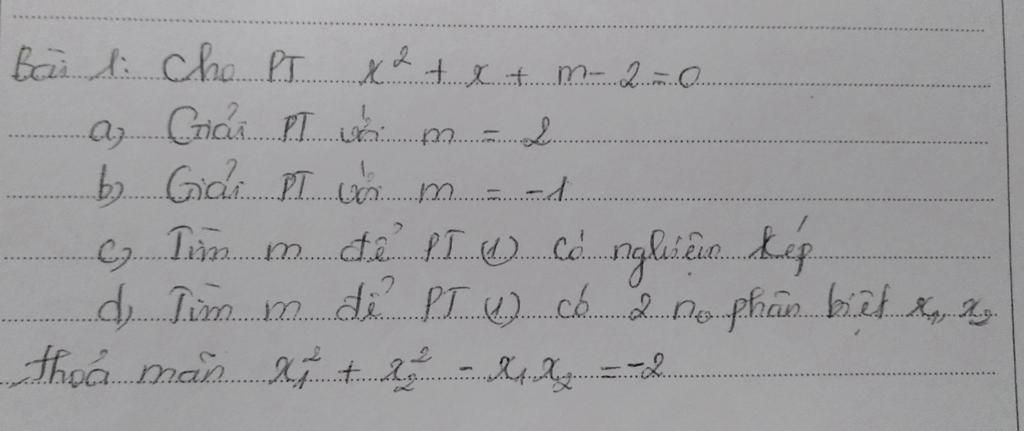 Bài 1: Cho PT x² + x + m - 2 = 0
a) Giải PT với m = 2
b) Giải PT với m = -1
c) Tìm m để PT (1) có nghiệm kép
d) Tìm m để PT (1) có 2 no phân biệt x₁, x₂
thoả mãn x₁² + x₂² - x₁x₂ = -2